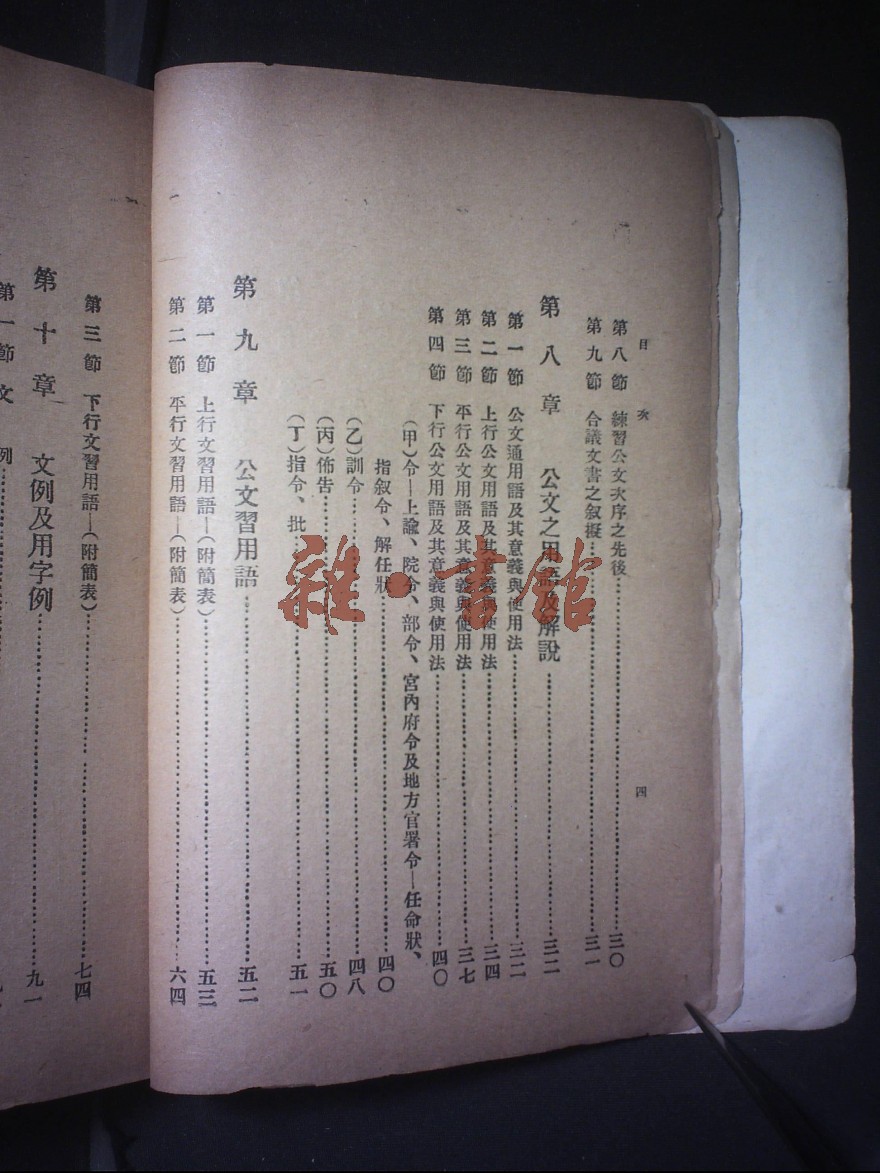 目次
四
第八節 練習公文次序之先後……三〇
第九節 合議文書之叙擬……三一
第八章 公文之用語及解說……三二
第一節 公文通用語及其意義與使用法……三二
第二節 上行公文用語及其意義與使用法……三四
第三節 平行公文用語及其意義與使用法……三七
第四節 下行公文用語及其意義與使用法……四〇
(甲)令—上諭、院令、部令、宮內府令及地方官署令—任命狀、
指叙令、解任狀……四〇
(乙)訓令……四八
(丙)佈告……五〇
(丁)指令、批……五一
第九章 公文習用語……五二
第一節 上行文習用語—(附簡表)……五三
第二節 平行文習用語—(附簡表)……六四
第三節 下行文習用語—(附簡表)……七四
第十章 文例及用字例……九一
第一節 文例……
雜·書館